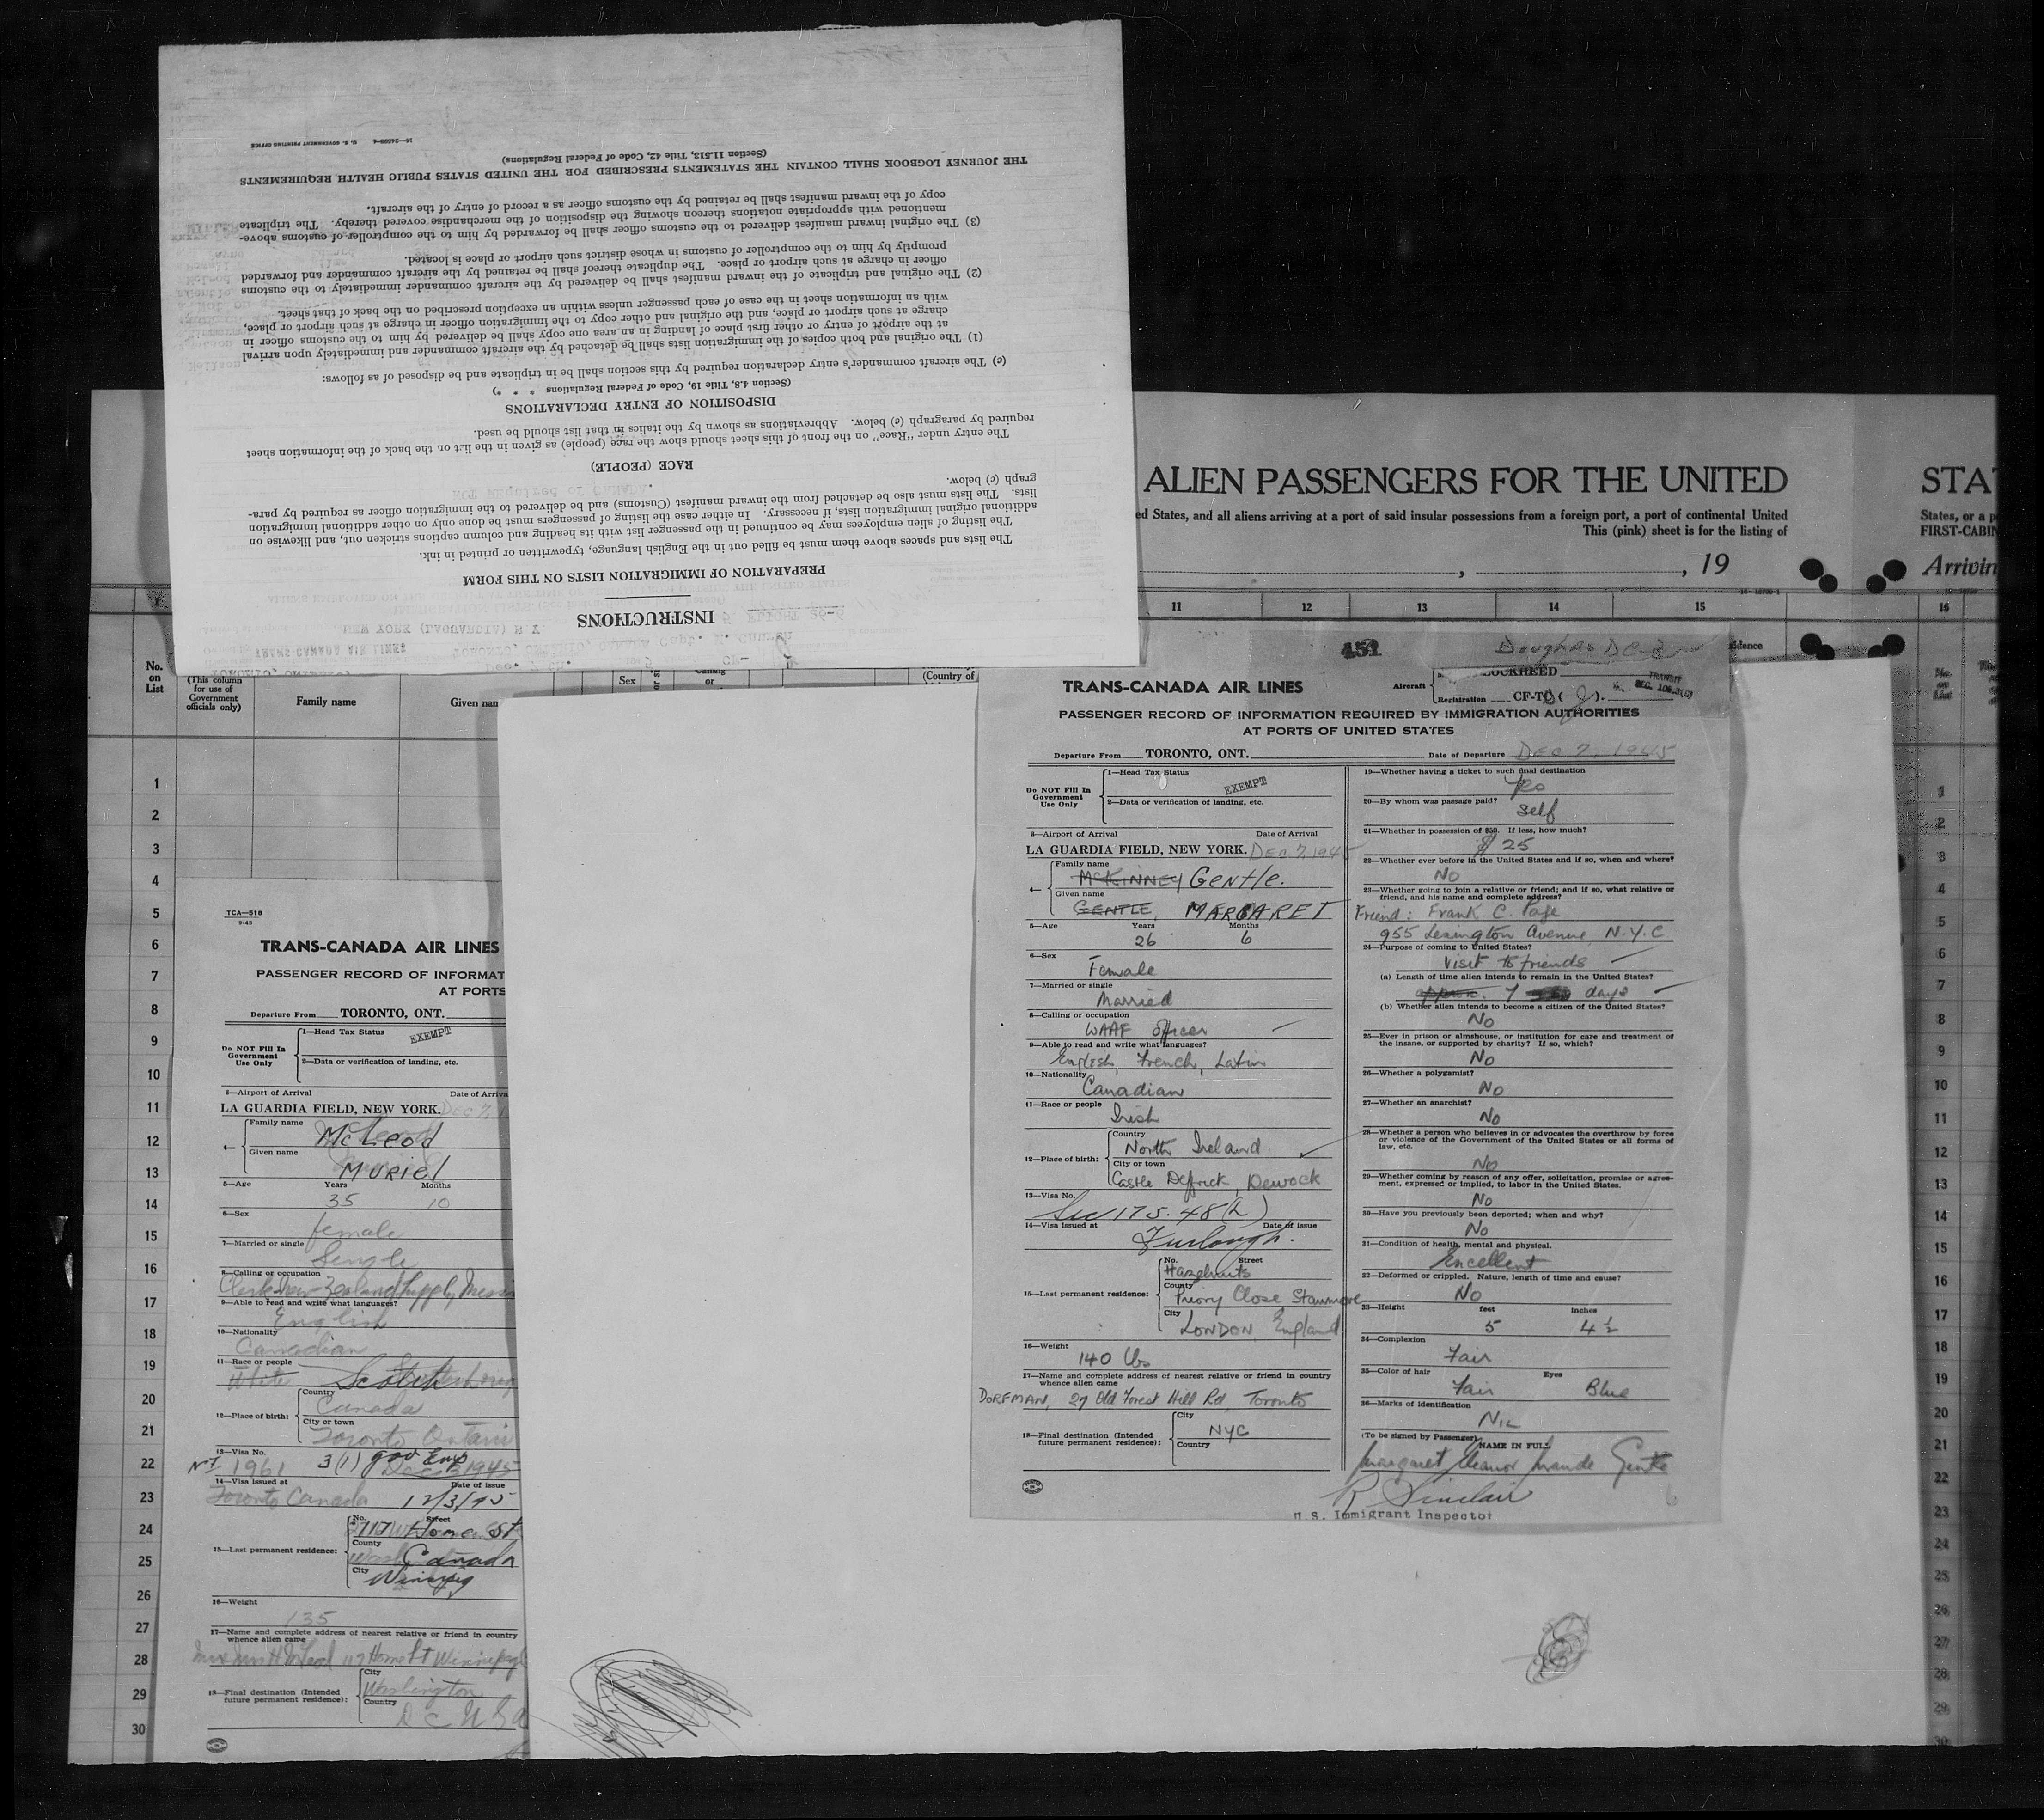 INSTRUCTIONS
PREPARATION OF IMMIGRATION LISTS ON THIS FORM
The lists and spaces above them must be filled out in the English language, typewritten or printed in ink.
The listing of alien employees may be continued in the passenger list with its heading and column captions stricken out, and likewise on
additional original immigration lists, if necessary. In either case the listing of passengers must be done only on other additional immigration
lists. The lists must also be detached from the inward manifest (Customs) and be delivered to the immigration officer as required by para-
graph (c) below.
RACE (PEOPLE)
The entry under "Race" on the front of this sheet should show the race (people) as given in the list on the back of the information sheet
required by paragraph (c) below. Abbreviations as shown by the italics in that list should be used.
DISPOSITION OF ENTRY DECLARATIONS
(Section 4.8, Title 19, Code of Federal Regulations * * *)
(c) The aircraft commander's entry declaration required by this section shall be in triplicate and be disposed of as follows:
(1) The original and both copies of the immigration lists shall be detached by the aircraft commander and immediately upon arrival
at the airport of entry or other first place of landing in an area one copy shall be delivered by him to the customs officer in
charge at such airport or place, and the original and other copy to the immigration officer in charge at such airport or place,
with an information sheet in the case of each passenger unless within an exception prescribed on the back of that sheet.
(2) The original and triplicate of the inward manifest shall be delivered by the aircraft commander immediately to the customs
officer in charge at such airport or place. The duplicate thereof shall be retained by the aircraft commander and forwarded
promptly by him to the comptroller of customs in whose district such airport or place is located.
(3) The original inward manifest delivered to the customs officer shall be forwarded by him to the comptroller of customs above-
mentioned with appropriate notations thereon showing the disposition of the merchandise covered thereby. The triplicate
copy of the inward manifest shall be retained by the customs officer as a record of entry of the aircraft.
THE JOURNEY LOGBOOK SHALL CONTAIN THE STATEMENTS PRESCRIBED FOR THE UNITED STATES PUBLIC HEALTH REQUIREMENTS
(Section 11.513, Title 42, Code of Federal Regulations)
U. S. GOVERNMENT PRINTING OFFICE
ALIEN PASSENGERS FOR THE UNITED
STA
ed States, and all aliens arriving at a port of said insular possessions from a foreign port, a port of continental United
States, or a p
This (pink) sheet is for the listing of
FIRST-CABIN
, 19
Arrivin
1 11 12 13 14 15 16
No. on List
(This column for use of Government officials only)
Family name
Given nam
Sex
or
(Country of
1
2
3
4
5
6
7
8
9
10
11
12
13
14
15
16
17
18
19
20
21
22
23
24
25
26
27
28
29
30
TCA—518
9-45
TRANS-CANADA AIR LINES
PASSENGER RECORD OF INFORMAT
AT PORTS
Departure From TORONTO, ONT.
Do NOT Fill In Government Use Only
1—Head Tax Status
EXEMPT
2—Data or verification of landing, etc.
3—Airport of Arrival Date of Arriva
LA GUARDIA FIELD, NEW YORK. Dec 7, 1
4— Family name
McLeod
Given name
MURIEL
5—Age Years Months
35 10
6—Sex
female
7—Married or single
Single
8—Calling or occupation
Clerk New Zealand Supply Missi
9—Able to read and write what languages?
English
10—Nationality
Canadian
11—Race or people
White Scotch
12—Place of birth: Country
Canada
City or town
Toronto Ontario
13—Visa No.
1961 3(1) gov Emp
Dec 3 1945
14—Visa issued at Date of issue
Toronto Canada 12/3/45
15—Last permanent residence: No. Street
117 Home St
County
Canada
City
Winnipeg
16—Weight
135
17—Name and complete address of nearest relative or friend in country
whence alien came
117 Home St Winnipeg
18—Final destination (Intended future permanent residence): City
Washington
Country
D C U S A
451
Douglas DC-3
TRANS-CANADA AIR LINES
Aircraft LOCKHEED
Registration CF-T
TRANSIT
PASSENGER RECORD OF INFORMATION REQUIRED BY IMMIGRATION AUTHORITIES
AT PORTS OF UNITED STATES
Departure From TORONTO, ONT. Date of Departure DEC 7, 1945
Do NOT Fill In Government Use Only
1—Head Tax Status
EXEMPT
2—Data or verification of landing, etc.
3—Airport of Arrival Date of Arrival
LA GUARDIA FIELD, NEW YORK. DEC 7, 1945
4— Family name
McKINNEY Gentle.
Given name
GENTLE, MARGARET
5—Age Years Months
26 6
6—Sex
Female
7—Married or single
Married
8—Calling or occupation
WAAF officer
9—Able to read and write what languages?
English, French, Latin
10—Nationality
Canadian
11—Race or people
Irish
12—Place of birth: Country
North Ireland
City or town
Castle
13—Visa No.
Sec 175.48(h)
14—Visa issued at Date of issue
Furlough.
15—Last permanent residence: No. Street
Hazelnuts
County
Priory Close Stanmore
City
LONDON, England
16—Weight
140 lbs
17—Name and complete address of nearest relative or friend in country
whence alien came
DORFMAN, 27 Old Forest Hill Rd, Toronto
18—Final destination (Intended future permanent residence): City
NYC
Country
19—Whether having a ticket to such final destination
Yes
20—By whom was passage paid?
Self
21—Whether in possession of $50. If less, how much?
$ 25
22—Whether ever before in the United States and if so, when and where?
No
23—Whether going to join a relative or friend; and if so, what relative or
friend, and his name and complete address?
Friend: Frank C. Page
955 Lexington Avenue, N.Y.C
24—Purpose of coming to United States?
Visit to friends
(a) Length of time alien intends to remain in the United States?
approx. 7 days
(b) Whether alien intends to become a citizen of the United States?
No
25—Ever in prison or almshouse, or institution for care and treatment of
the insane, or supported by charity? If so, which?
No
26—Whether a polygamist?
No
27—Whether an anarchist?
No
28—Whether a person who believes in or advocates the overthrow by force
or violence of the Government of the United States or all forms of
law, etc.
No
29—Whether coming by reason of any offer, solicitation, promise or agree-
ment, expressed or implied, to labor in the United States.
No
30—Have you previously been deported; when and why?
No
31—Condition of health, mental and physical.
Excellent
32—Deformed or crippled. Nature, length of time and cause?
No
33—Height feet inches
5 4½
34—Complexion
Fair
35—Color of hair Eyes
Fair Blue
36—Marks of identification
NIL
(To be signed by Passenger) NAME IN FULL
Margaret Eleanor Maude Gentle
R Sinclair
U. S. Immigrant Inspector